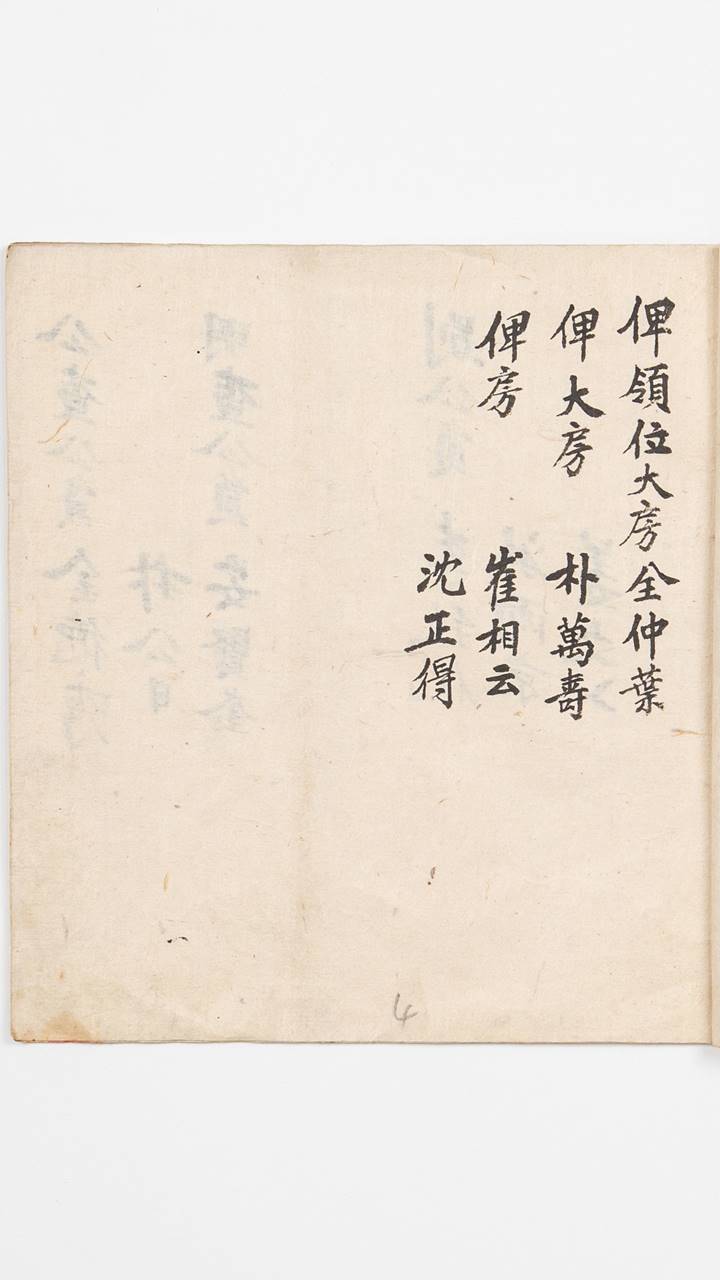 俾領位大房全仲葉
俾大房 朴萬壽
俾房 崔相云
沈正得
4